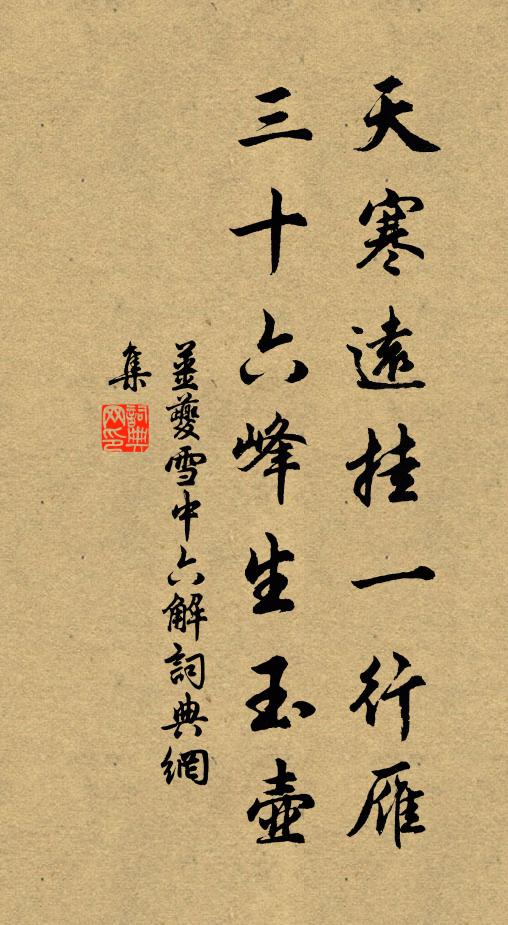 天寒遠挂一行雁
三十六峰生玉壺
姜夔雪中六解詞典網
集
詞典网印